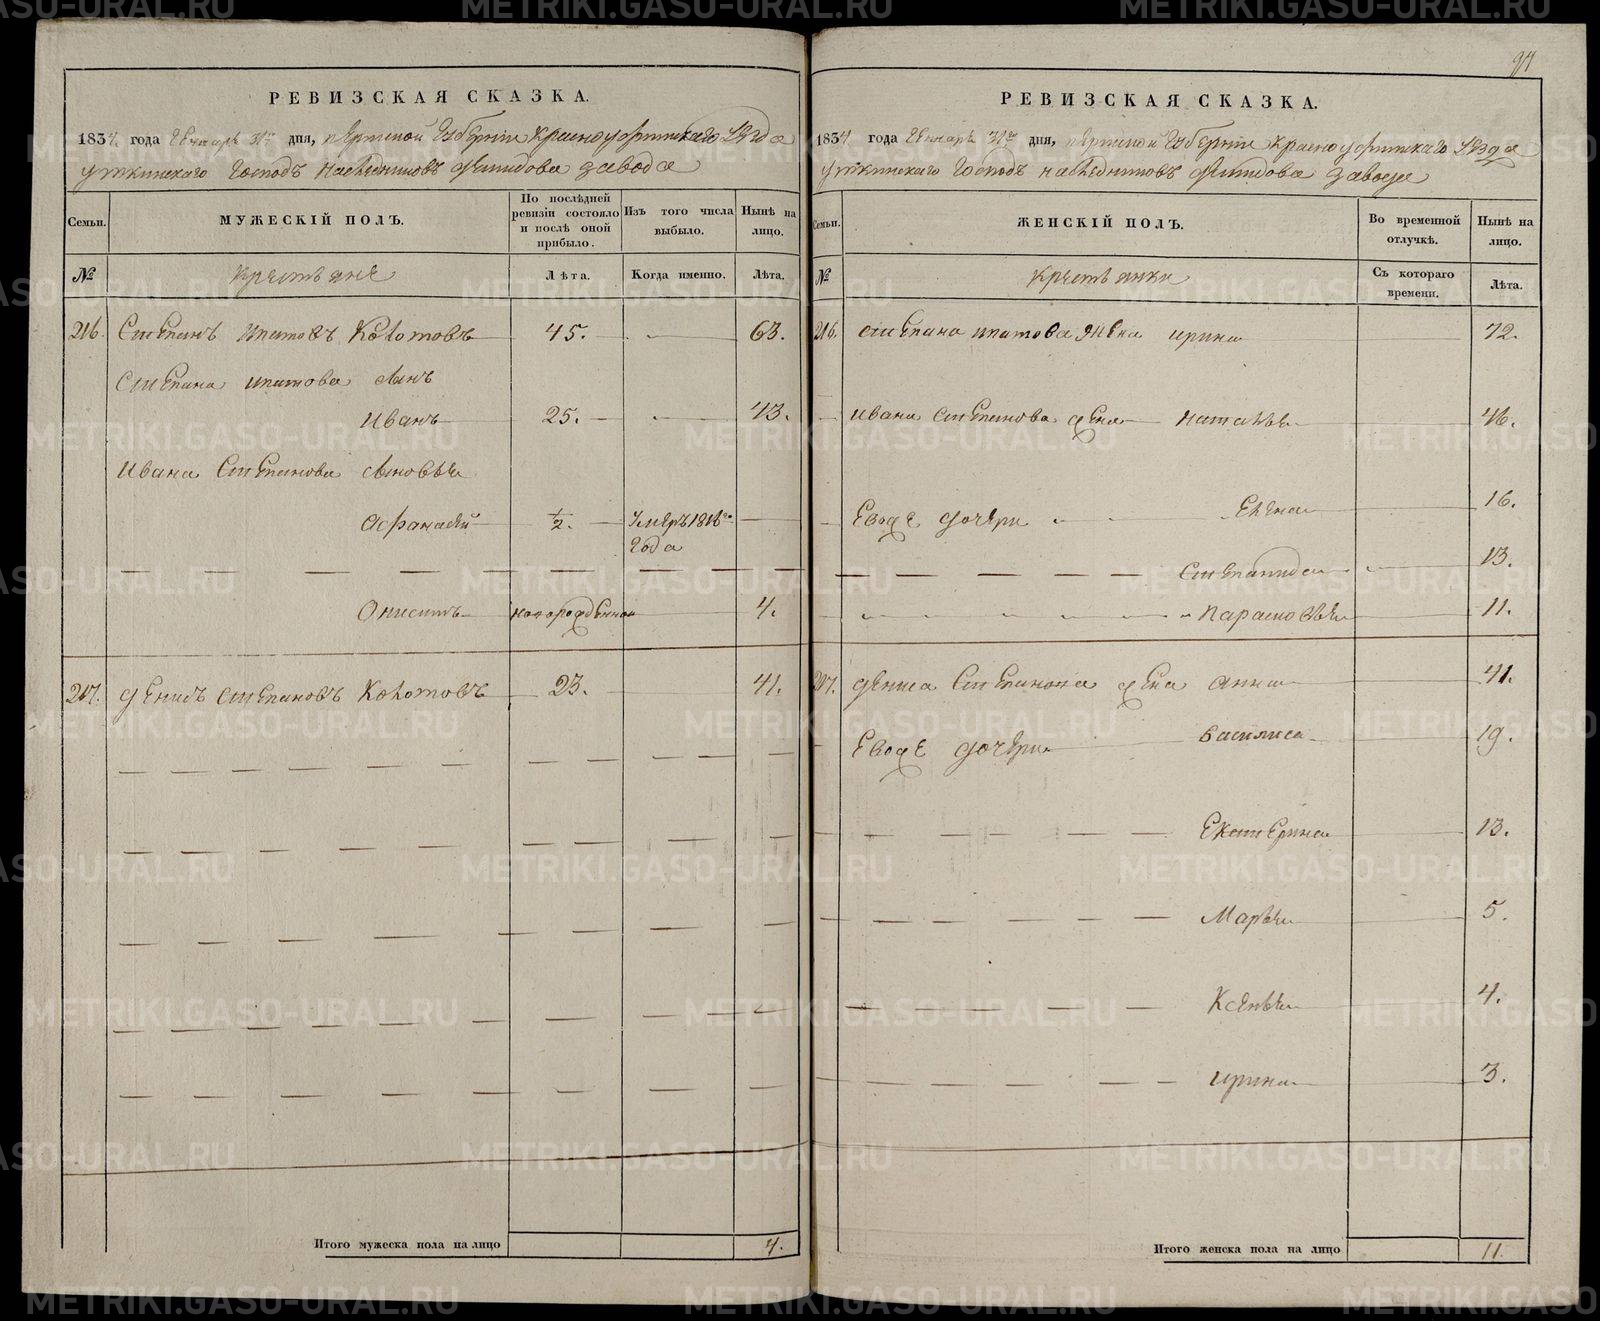 94
РЕВИЗСКАЯ СКАЗКА.
1834 года Генваря 31го дня, Пермской Губернiи Красноуфимскаго уѣзда
Уткинскаго Господъ наслѣдниковъ Демидова завода
Семьи. МУЖЕСКІЙ ПОЛЪ. По послѣдней ревизіи состояло и послѣ оной прибыло. Изъ того числа выбыло. Нынѣ на лицо.
№ Крестьяне Лѣта. Когда именно. Лѣта.
216. Степанъ Ипатовъ Кокотовъ 45. 63.
Степана Ипатова сынъ
Иванъ 25. 43.
Ивана Степанова сыновья
Афанасей 1/2. Умеръ 1816го
года
Онисимъ новорожденной 4.
217. Денисъ Степановъ Кокотовъ 23. 41.
Итого мужеска пола на лицо 4.
РЕВИЗСКАЯ СКАЗКА.
1834 года Генваря 31го дня, Пермской Губернiи Красноуфимскаго уѣзда
Уткинскаго Господъ наслѣдниковъ Демидова завода
Семьи. ЖЕНСКІЙ ПОЛЪ. Во временной отлучкѣ. Нынѣ на лицо.
№ Крестьянки Съ котораго времени. Лѣта.
216. Степана Ипатова жена Ирина 72.
Ивана Степанова жена Наталья 46.
Евоже дочери Елена 16.
Степанида 13.
Парасковья 11.
217. Дениса Степанова жена Анна 41.
Евоже дочери Василиса 19.
Екатерина 13.
Марья 5.
Ксенья 4.
Ирина 3.
Итого женска пола на лицо 11.
METRIKI.GASO-URAL.RU